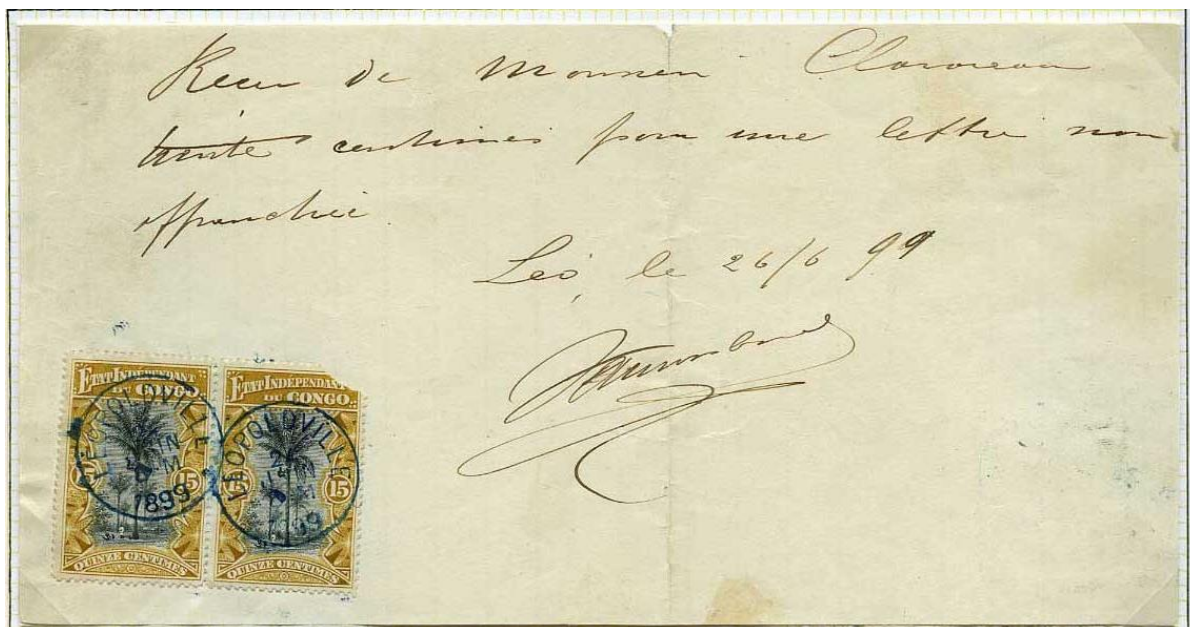 Recu de Monsieur
trente centimes pour une lettre non
affranchie
Léo, le 26/6 99
ETAT INDÉPENDANT
DU CONGO
LÉOPOLDVILLE
JUIN
M
1899
15 15
QUINZE CENTIMES
ETAT INDÉPENDANT
DU CONGO
LÉOPOLDVILLE
15 15
QUINZE CENTIMES